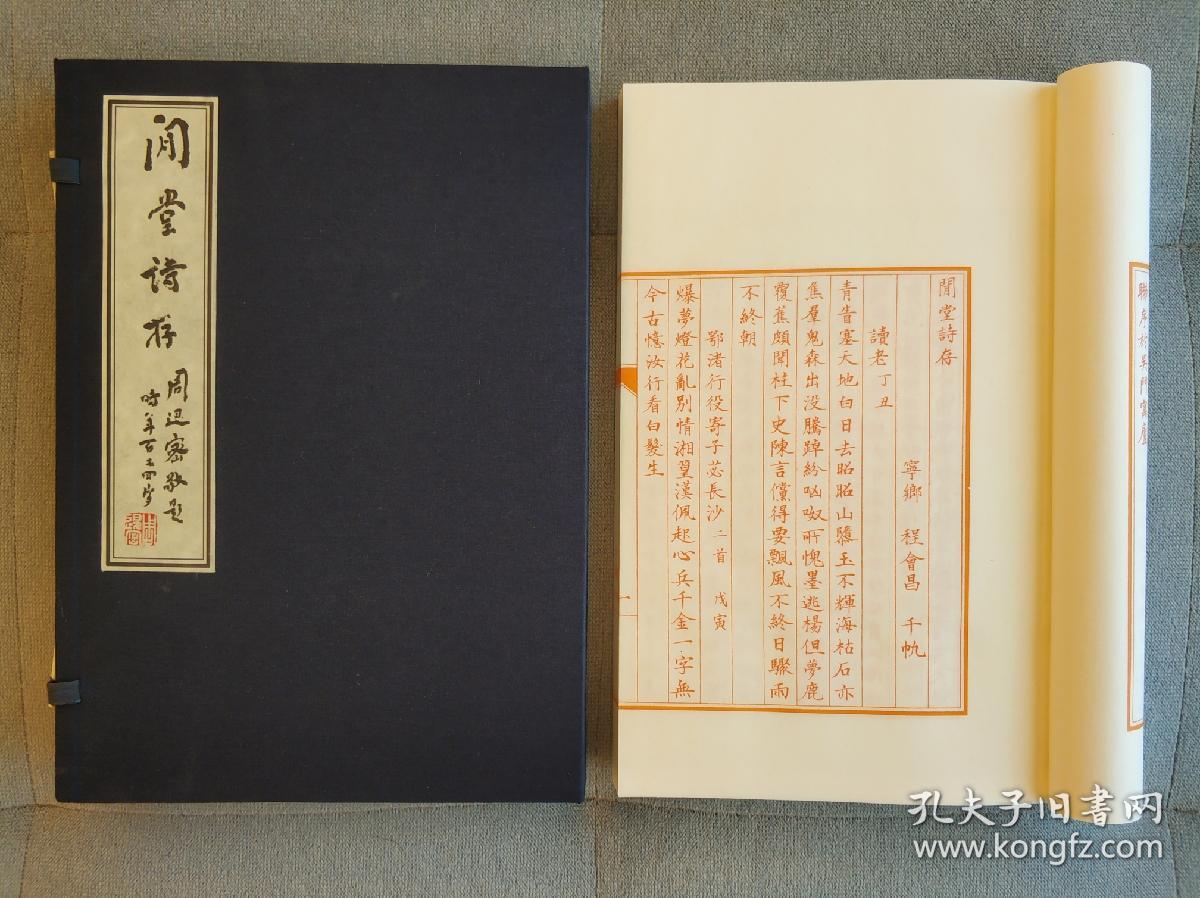 閒堂詩存
周退密敬題
時年百又四岁
閒堂詩存
寧鄉 程會昌 千帆
讀老 丁丑
青眚塞天地白日去昭昭山隳玉不輝海枯石亦
焦羣鬼森出没騰踔紛呶所愧墨逃楊但夢鹿
覆蕉頗聞柱下史陳言儻得要飄風不終日驟雨
不終朝
鄂渚行役寄子苾長沙 二首 戊寅
爆夢燈花亂別情湘臯漢佩起心兵千金一字無
今古憶汝行看白髮生
一
聯序於吳門寓廬
孔夫子旧书网
www.kongfz.com